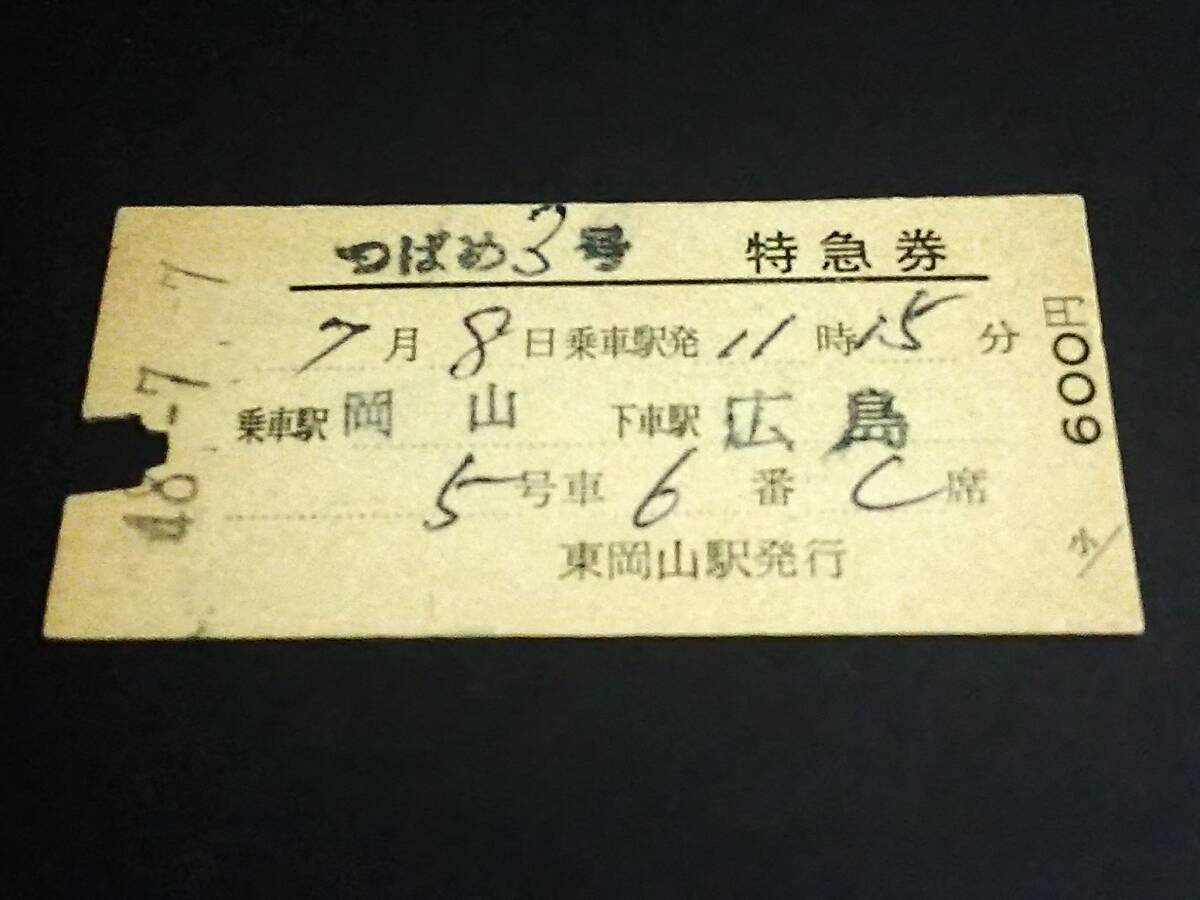 つばめ3号 特急券
7月8日乗車駅発11時15分
乗車駅 岡山 下車駅 広島
5号車6番C席
東岡山駅発行
600円
48.-7.-7